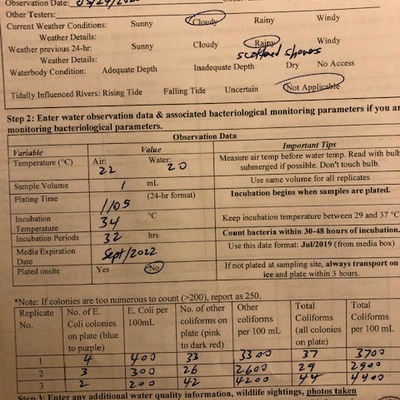 Observation Date:
Other Testers:
Current Weather Conditions: Sunny Cloudy Rainy Windy
Weather Details:
Weather previous 24-hr: Sunny Cloudy Rainy Windy
Weather Details: scattered showers
Waterbody Condition: Adequate Depth Inadequate Depth Dry No Access
Tidally Influenced Rivers: Rising Tide Falling Tide Uncertain Not Applicable
Step 2: Enter water observation data & associated bacteriological monitoring parameters if you ar
monitoring bacteriological parameters.
Observation Data
Variable Value Important Tips
Temperature (°C) Air: 22 Water: 20 Measure air temp before water temp. Read with bulb submerged if possible. Don't touch bulb.
Sample Volume 1 mL Use same volume for all replicates
Plating Time 1105 (24-hr format) Incubation begins when samples are plated.
Incubation Temperature 34 °C Keep incubation temperature between 29 and 37 °C
Incubation Periods 32 hrs Count bacteria within 30-48 hours of incubation.
Media Expiration Date Sept/2022 Use this date format: Jul/2019 (from media box)
Plated onsite Yes No If not plated at sampling site, always transport on ice and plate within 3 hours.
*Note: If colonies are too numerous to count (>200), report as 250.
Replicate No. No. of E. Coli colonies on plate (blue to purple) E. Coli per 100mL No. of other coliforms on plate (pink to dark red) Other coliforms per 100 mL Total Coliforms (all colonies on plate) Total Coliforms per 100 mL
1 4 400 33 3300 37 3700
2 3 300 26 2600 29 2900
3 2 200 42 4200 44 4400
Step 3: Enter any additional water quality information, wildlife sightings, photos taken